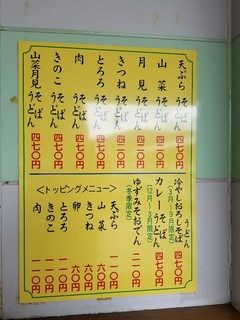 天ぷら そば うどん 四七〇円
山菜 そば うどん 四二〇円
月見 そば うどん 四二〇円
きつね そば うどん 四二〇円
とろろ そば うどん 四七〇円
肉 そば うどん 四七〇円
きのこ そば うどん 四七〇円
山菜月見 そば うどん 四七〇円
冷やしおろしそば うどん 四七〇円
(3月~9月限定)
カレー そば うどん 四七〇円
(12月~3月限定)
ゆずみそおでん 二一〇円
(冬季限定)
<トッピングメニュー>
天ぷら 一一〇円
山菜 六〇円
きつね 六〇円
卵 六〇円
とろろ 一一〇円
きのこ 一一〇円
肉 一一〇円